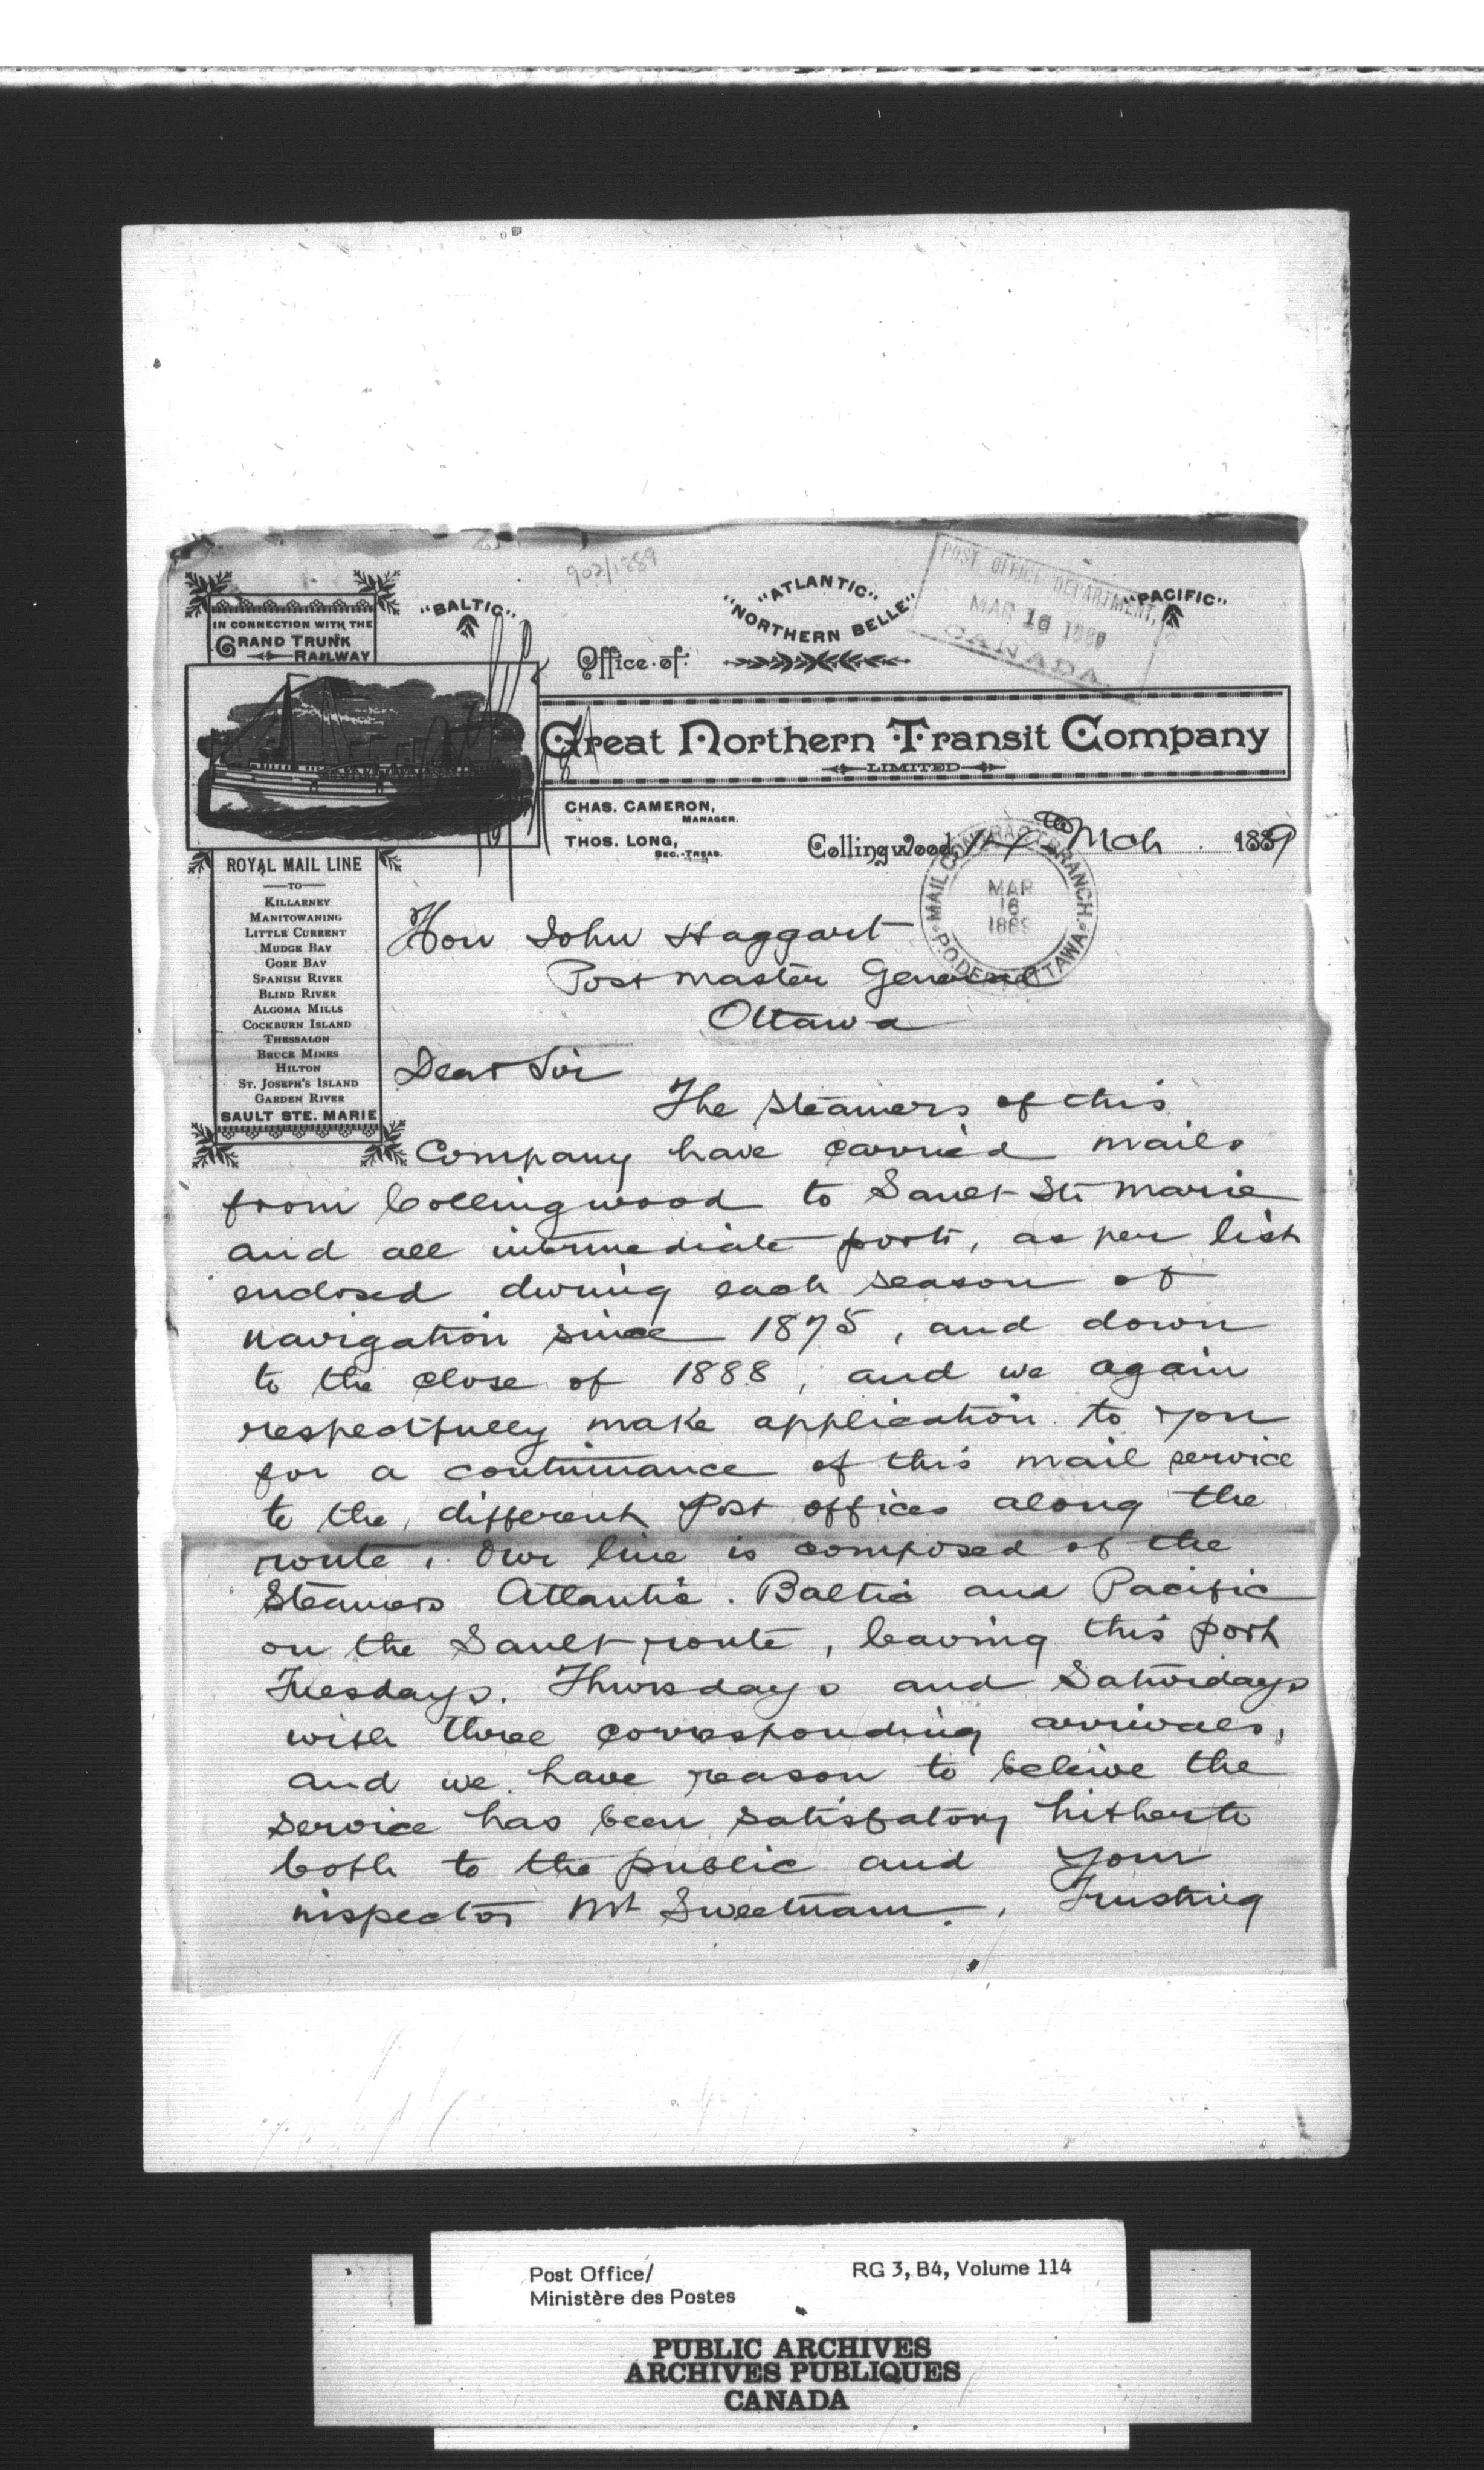 902/1889
"BALTIC"
"ATLANTIC"
"NORTHERN BELLE"
"PACIFIC"
POST OFFICE DEPARTMENT,
MAR 16 1889
CANADA
IN CONNECTION WITH THE
GRAND TRUNK
RAILWAY
Office of
Great Northern Transit Company
LIMITED
CHAS. CAMERON,
MANAGER.
THOS. LONG,
SEC.-TREAS.
Collingwood, Mch 1889
MAIL CONTRACT BRANCH
MAR
16
1889
P.O. DEPT OTTAWA
ROYAL MAIL LINE
TO
KILLARNEY
MANITOWANING
LITTLE CURRENT
MUDGE BAY
GORE BAY
SPANISH RIVER
BLIND RIVER
ALGOMA MILLS
COCKBURN ISLAND
THESSALON
BRUCE MINES
HILTON
ST. JOSEPH'S ISLAND
GARDEN RIVER
SAULT STE. MARIE
Hon John Haggart
Post master General
Ottawa
Dear Sir
The Steamers of this
Company have carried mails
from Collingwood to Sault Ste Marie
and all intermediate ports, as per list
enclosed during each season of
navigation since 1875, and down
to the close of 1888, and we again
respectfully make application to you
for a continuance of this mail service
to the different Post offices along the
route. Our line is composed of the
Steamers Atlantic. Baltic and Pacific
on the Sault route, leaving this port
Tuesdays. Thursdays and Saturdays
with three corresponding arrivals,
and we have reason to beleive the
service has been satisfatory hitherto
both to the public and your
inspector Mr Sweetnam. Trusting
Post Office/
Ministère des Postes
RG 3, B4, Volume 114
PUBLIC ARCHIVES
ARCHIVES PUBLIQUES
CANADA